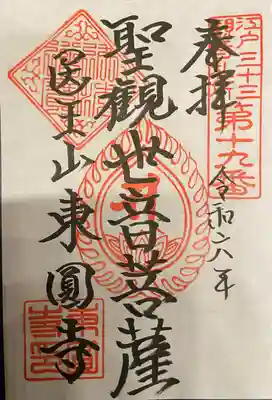 江戸三十三
第十九番
奉拝
令和六年
聖観世音菩薩
医王山東圓寺